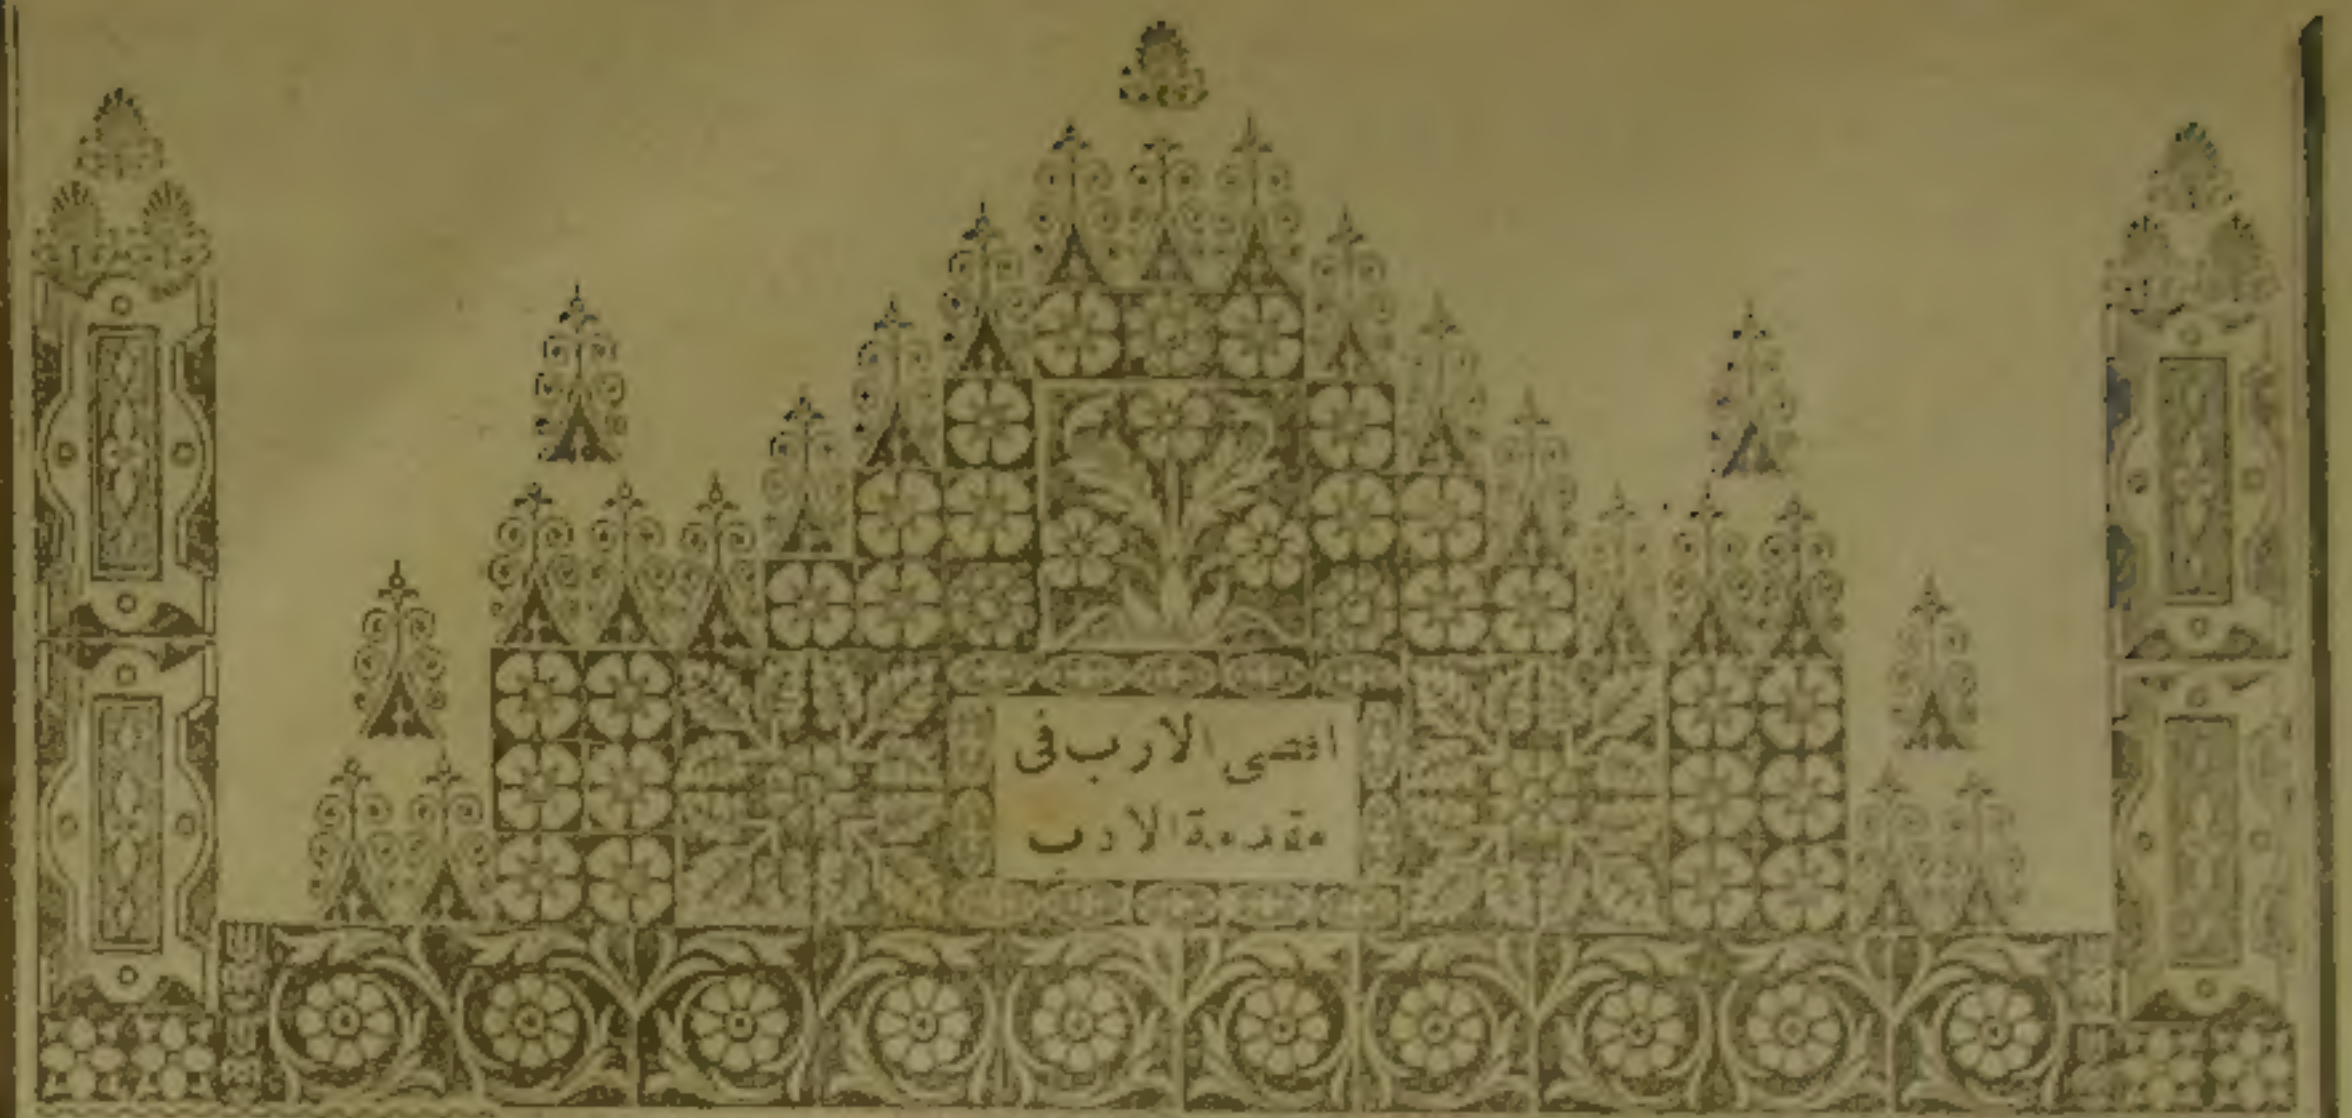 اقصى الارب فى
مقدمة الادب